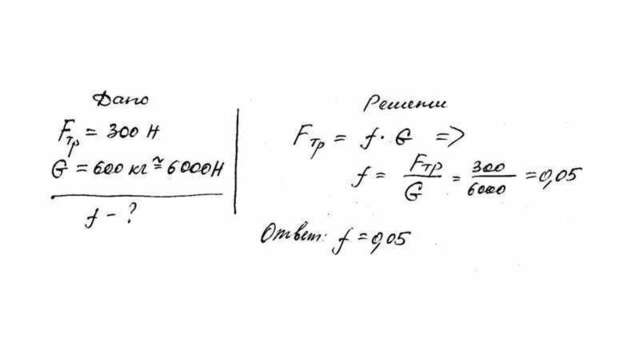 Дано
Fтр = 300 Н
G = 600 кг ≈ 6000 Н
f - ?
Решение
Fтр = f · G =>
f = Fтр/G = 300/6000 = 0,05
Ответ: f = 0,05